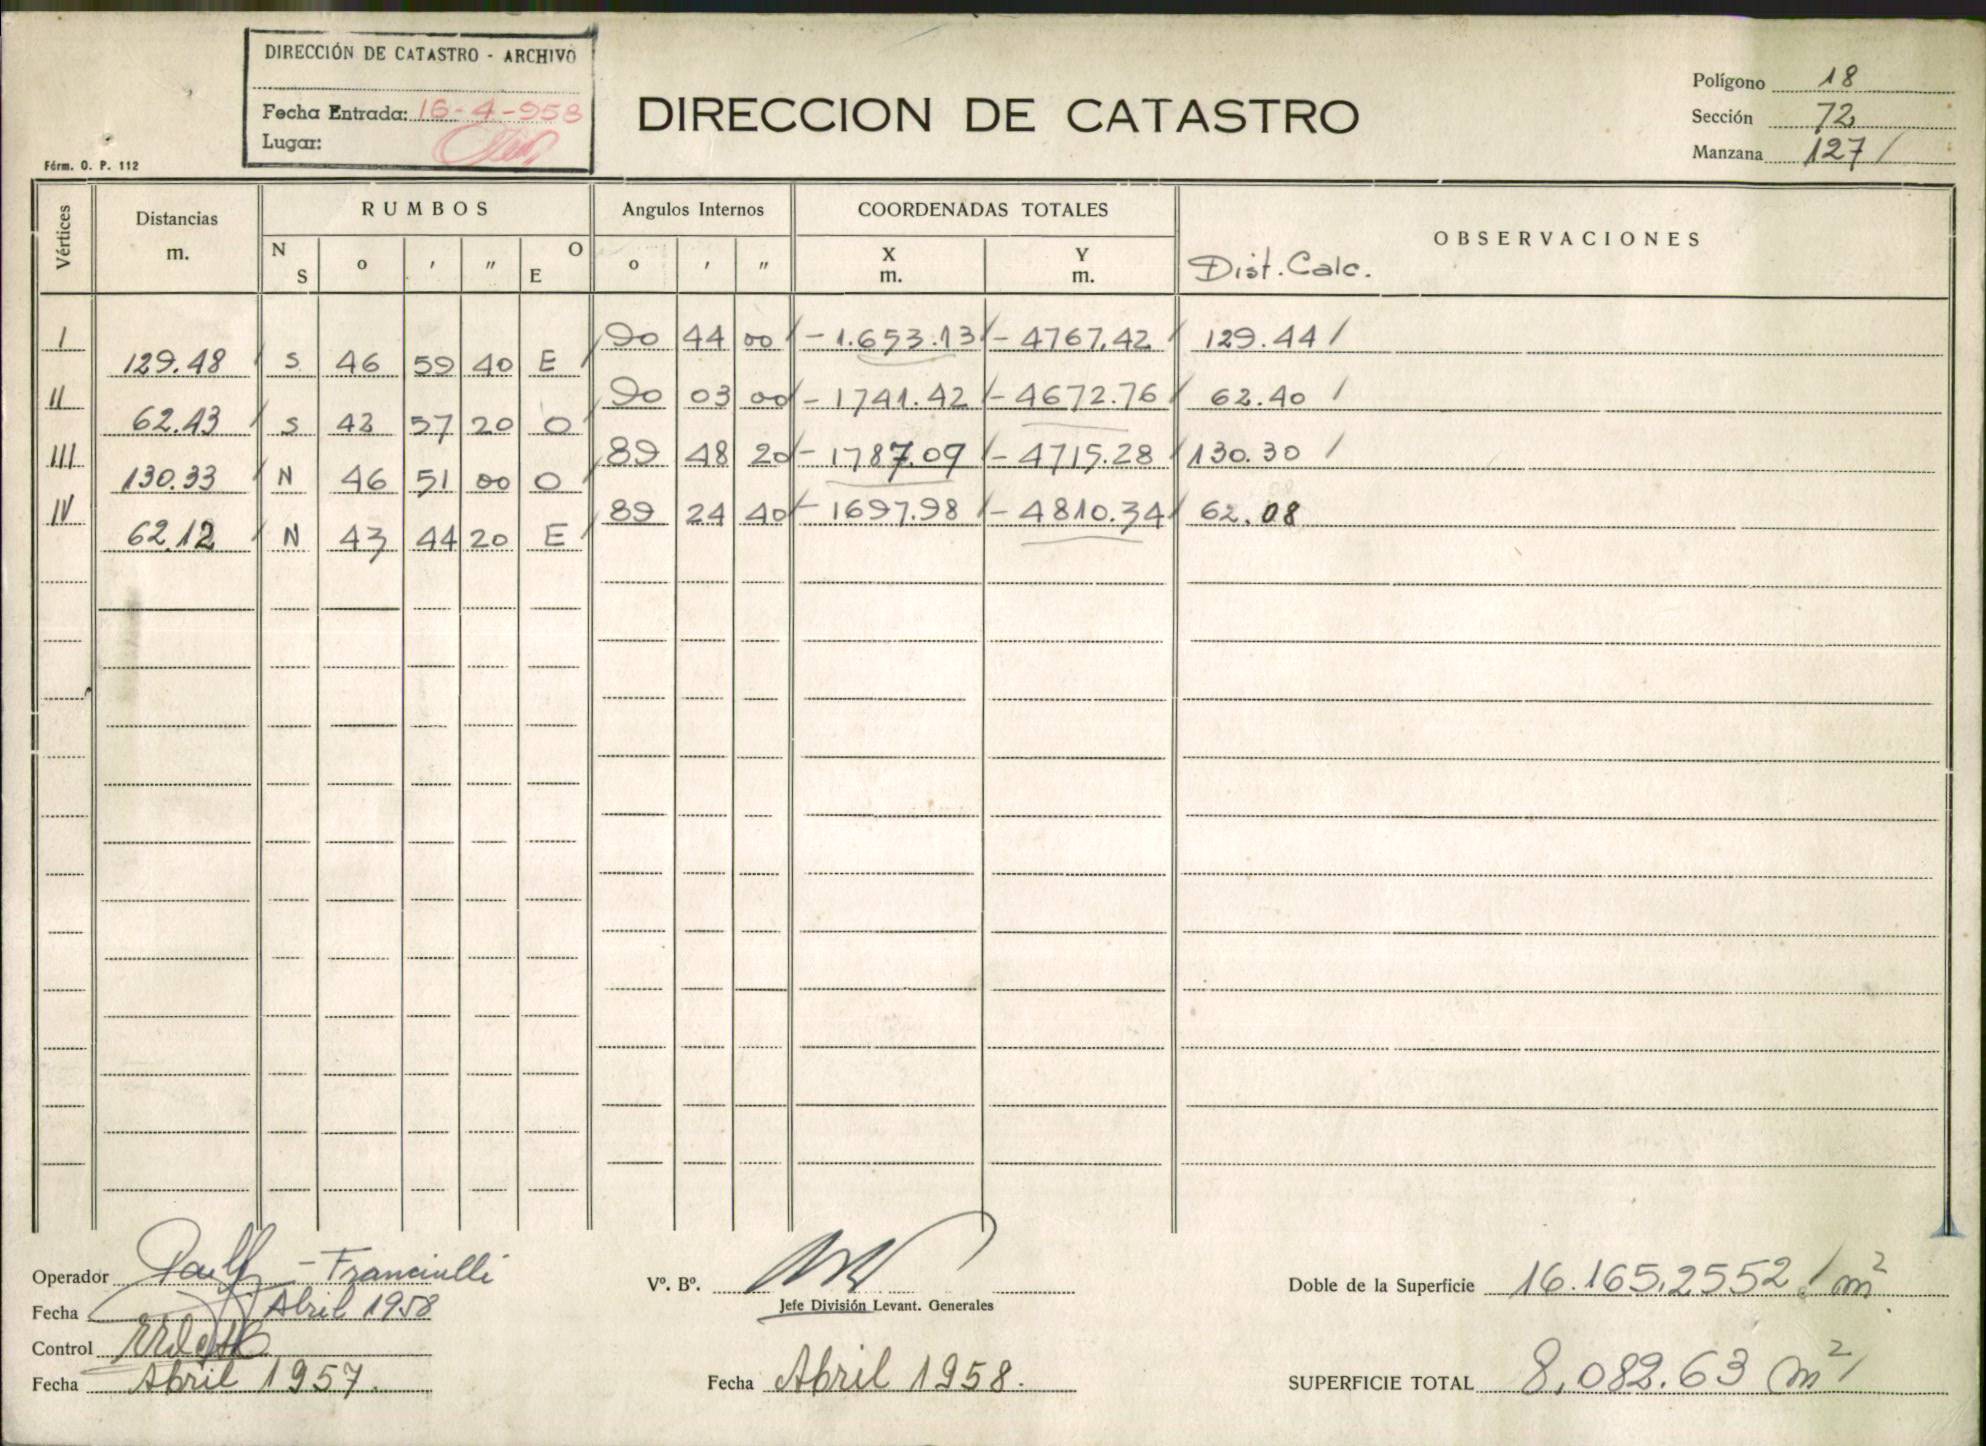 DIRECCIÓN DE CATASTRO - ARCHIVO
Fecha Entrada: 16-4-958
Lugar:
DIRECCION DE CATASTRO
Polígono 18
Sección 72
Manzana 127 /
Fórm. O. P. 112
Vértices
Distancias m.
RUMBOS
N S o ' " O E
Angulos Internos
o ' "
COORDENADAS TOTALES
X m. Y m.
OBSERVACIONES
Dist. Calc.
I 90 44 00 / - 1.653.13 / - 4767.42 / 129.44 /
129.48 / S 46 59 40 E /
II 90 03 00 / - 1741.42 / - 4672.76 / 62.40 /
62.43 / S 43 57 20 O
III 89 48 20 - 1787.09 / - 4715.28 / 130.30 /
130.33 / N 46 51 00 O
IV 89 24 40 - 1697.98 / - 4810.34 / 62.08
62.12 / N 43 44 20 E /
Operador - Franciulli
Fecha Abril 1958
Control
Fecha Abril 1957.
Vº. Bº.
Jefe División Levant. Generales
Fecha Abril 1958.
Doble de la Superficie 16.165,2552 / m²
SUPERFICIE TOTAL 8,082.63 m² /